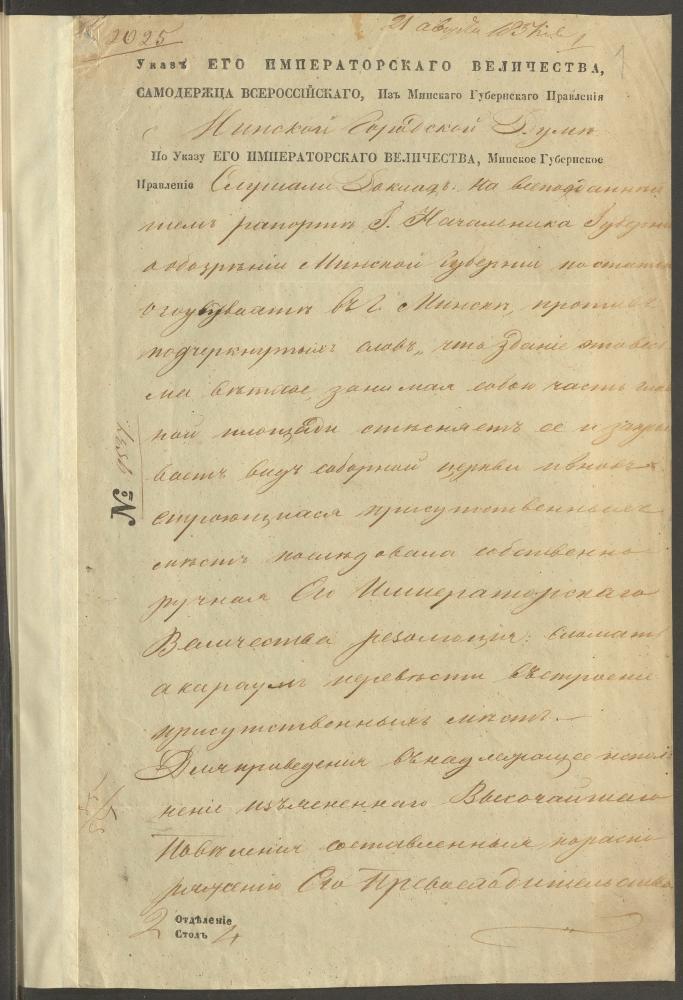 2025
21 августа 1851 1
1
Указъ ЕГО ИМПЕРАТОРСКАГО ВЕЛИЧЕСТВА,
САМОДЕРЖЦА ВСЕРОССІЙСКАГО, Изъ Минскаго Губернскаго Правленія
Минской Городской Думѣ
По Указу ЕГО ИМПЕРАТОРСКАГО ВЕЛИЧЕСТВА, Минское Губернское
Правленіе Слушали Докладъ. На всеподданнѣй
шемъ рапортѣ Г. Начальника Губерніи
о обозрѣніи Минской Губерніи по статьѣ
о гоубтвахтѣ въ г. Минскѣ, противъ
подчеркнутыхъ словъ, что зданіе это весь
ма ветхое, занимая собою часть глав
ной площади стѣсняетъ ее и закры
ваетъ видъ соборной церкви и вновь
строющихся присутственныхъ
мѣстъ послѣдовала собственно
ручная Его Императорскаго
Величества резолюція: сломать
а караулъ перевѣсти въ строеніе
присутственныхъ мѣстъ.—
Для приведенія въ надлежащее испол
неніе изъясненнаго Высочайшаго
Повѣленія составленныя по распо
ряженію Его Превосходительства
№
2 Отдѣленіе
Столъ 4